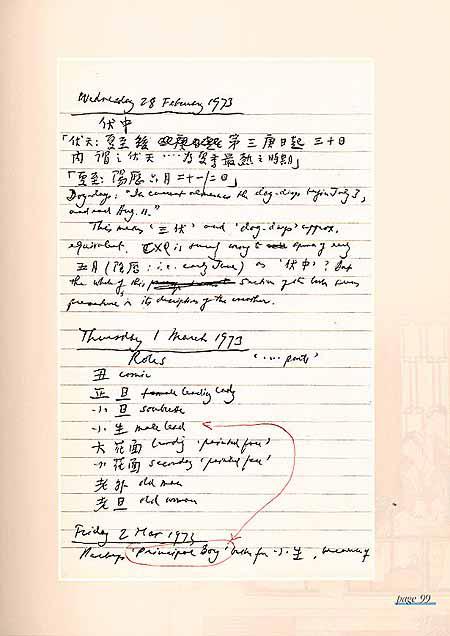 Wednesday 28 February 1973
伏中
「伏天：夏至後 第三庚日起 三十日
內謂之伏天 ‥‥為夏季最熱之時期」
「夏至：陽歷六月二十一/二日」
Dog-days: "In current almanacs the dog-days begin July 3,
and end Aug. 11."
This means '三伏' and 'dog-days' approx.
equivalent. CXQ is surely wrong to speak of early
五月 (陰歷: i.e. early June) as '伏中'? But
the whole of this section of the book
in its description of the weather.
Thursday 1 March 1973
Roles '.... parts'
丑 comic
正旦 leading lady
小旦 soubrette
小生 male lead
大花面 leading 'painted face'
小花面 secondary 'painted face'
老外 old man
老旦 old woman
Friday 2 Mar 1973
Perhaps 'Principal Boy' better for 小生, because of
page 99